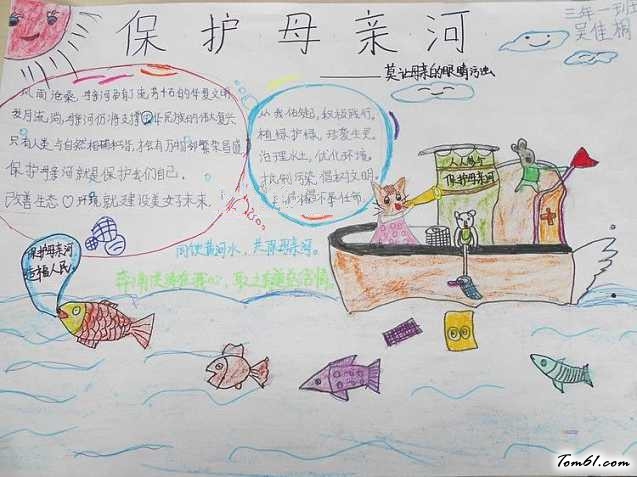 保护母亲河
三年一班
吴佳桐
莫让母亲的眼睛污浊
风雨沧桑，母亲河孕育了流芳千古的华夏文明
岁月流淌，母亲河仍将支撑中华民族的伟大复兴
只有人类与自然和谐相处，才有万物的繁荣昌盛
保护母亲河就是保护我们自己。
改善生态环境就是建设美好未来。
从我做起，积极践行。
植绿护绿，珍爱生灵。
治理水土，优化环境。
抵制污染，倡起文明。
人人参与
保护母亲河
保护母亲河
造福人民。
同饮黄河水，共保母亲河。
Tom61.com